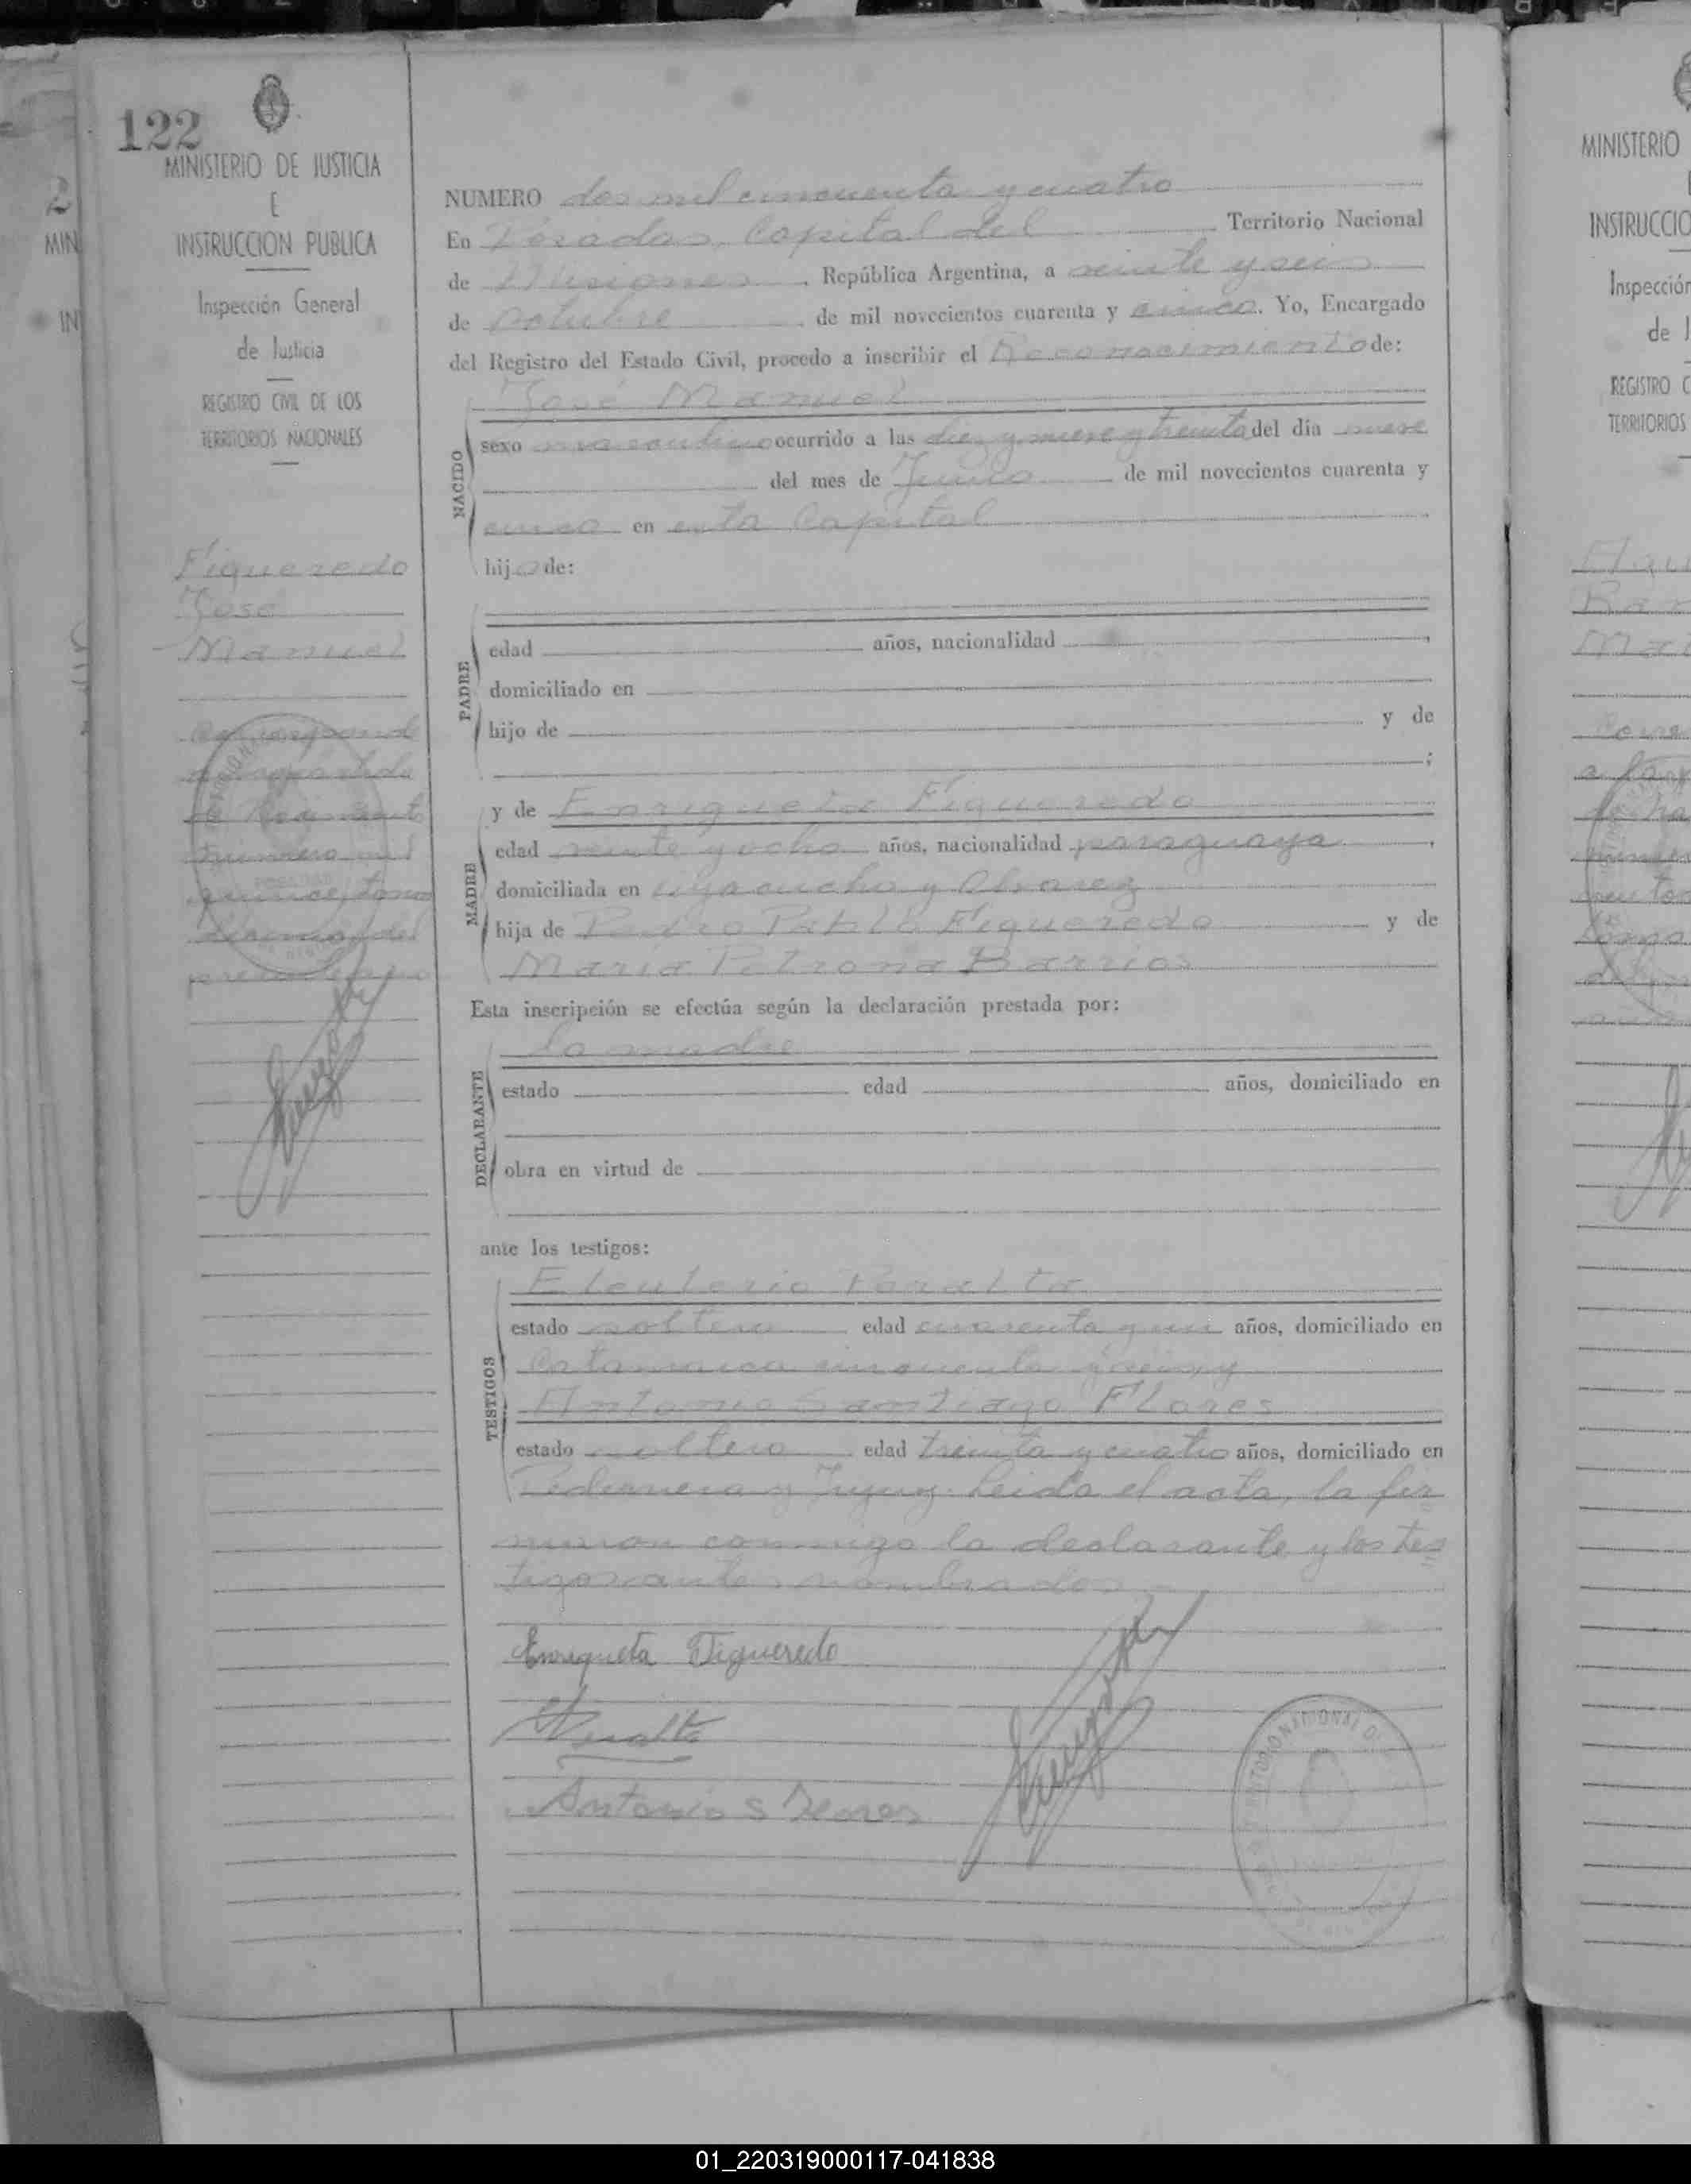 122
MINISTERIO DE JUSTICIA
E
INSTRUCCION PUBLICA
Inspección General
de Justicia
REGISTRO CIVIL DE LOS
TERRITORIOS NACIONALES
Figueredo
José
Manuel
NUMERO dos mil cincuenta y cuatro
En Posadas, Capital del Territorio Nacional
de Misiones, República Argentina, a veinte y seis
de octubre de mil novecientos cuarenta y cinco. Yo, Encargado
del Registro del Estado Civil, procedo a inscribir el Reconocimiento de:
José Manuel
NACIDO
sexo masculino ocurrido a las diez y nueve y treinta del día nueve
del mes de Junio de mil novecientos cuarenta y
cinco en esta Capital
hijo de:
PADRE
edad años, nacionalidad ,
domiciliado en
hijo de y de
;
MADRE
y de Enriqueta Figueredo
edad veinte y ocho años, nacionalidad paraguaya ,
domiciliada en Ayacucho y Alvarez
hija de Pedro Pablo Figueredo y de
Maria Petrona Barrios
Esta inscripción se efectúa según la declaración prestada por:
DECLARANTE
la madre
estado edad años, domiciliado en
obra en virtud de
ante los testigos:
TESTIGOS
Eleuterio Peralta
estado soltero edad cuarenta y un años, domiciliado en
Catamarca cincuenta y seis, y
Antonio Santiago Flores
estado soltero edad treinta y cuatro años, domiciliado en
Pedernera y Jujuy. Leida el acta, la fir
maron conmigo la declarante y los tes
tigos antes nombrados.
Enriqueta Figueredo
Peralta
Antonio S Flores
MINISTERIO
INSTRUCCIO
Inspección
de J
REGISTRO C
TERRITORIOS
01_220319000117-041838